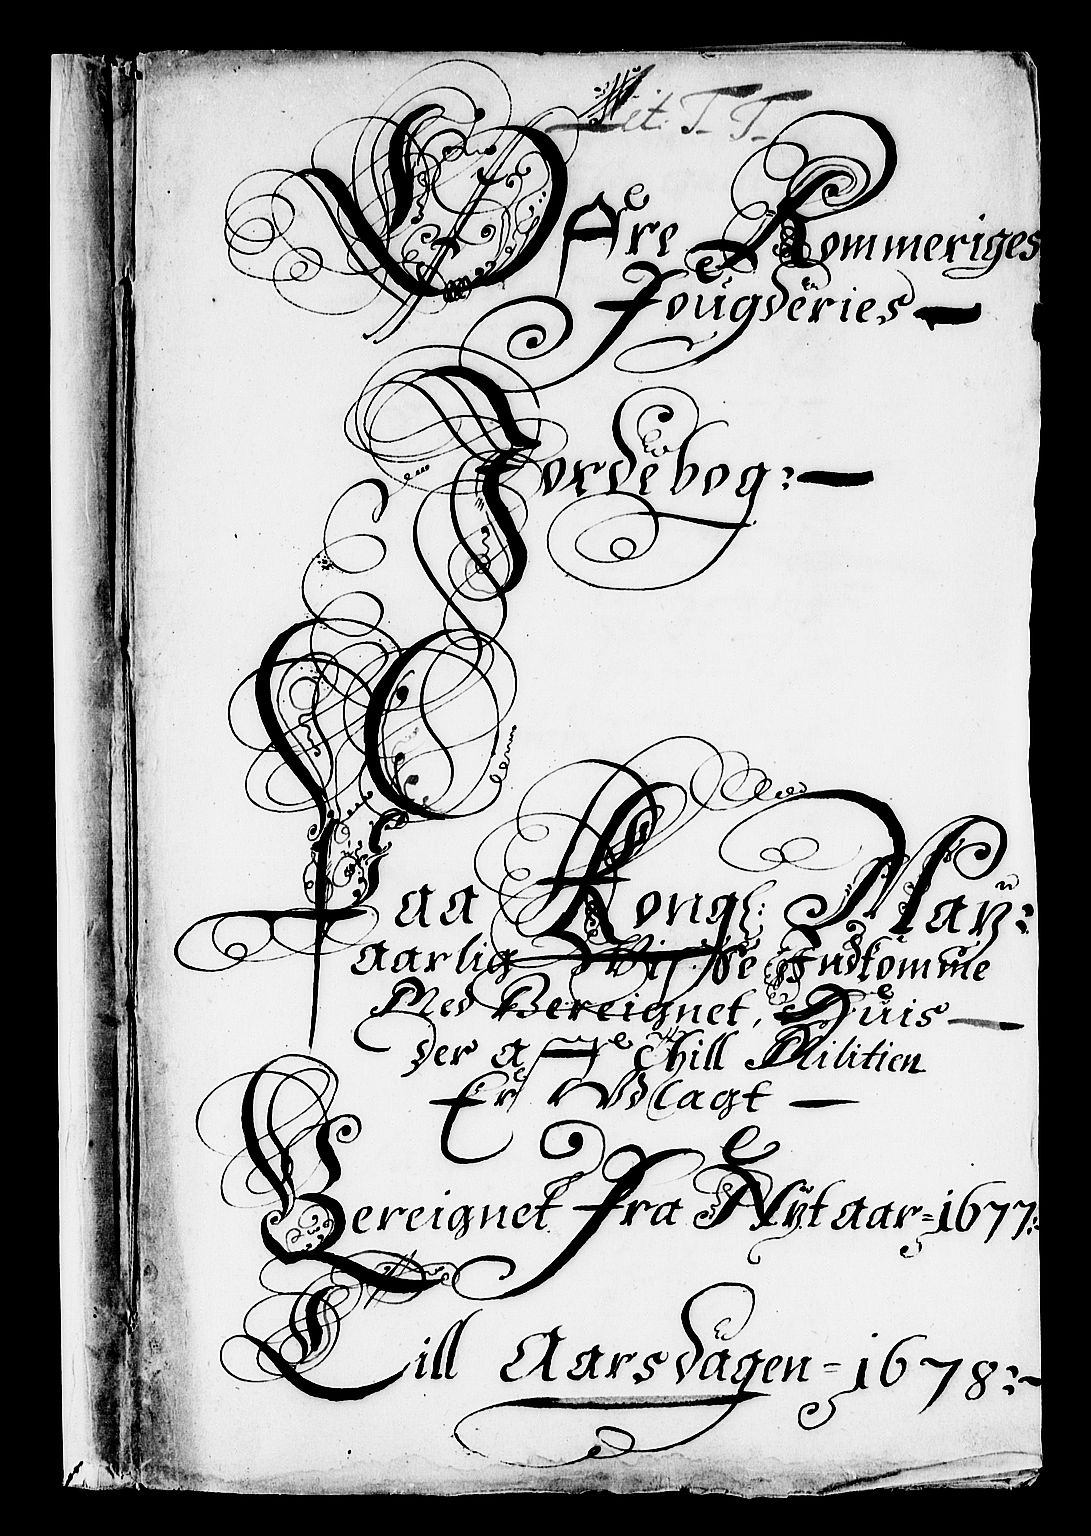 Lit. T. T.
Øfre Rommeriges
Fougderies
Jordebog:
Paa Kongl: May:
aarlig Visse Indkomme
Med Bereignet, Huis
der aff Thill Militien
Er Vdlagt
Bereignet Fra Nytaar 1677:
Till Aarsdagen 1678: